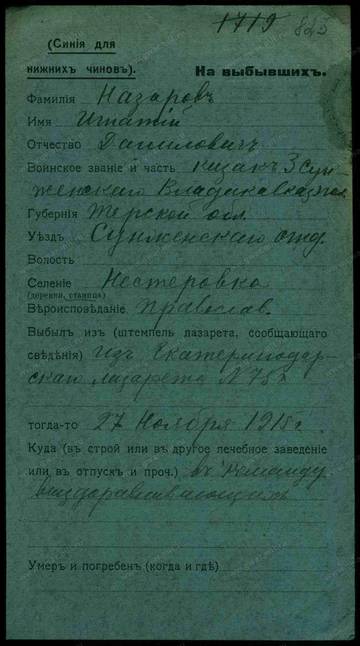 1719 825
(Синія для
нижнихъ чиновъ). На выбывшихъ.
Фамилія Назаровъ
Имя Игнатій
Отчество Даниловичъ
Воинское званіе и часть казакъ 3 Сун-
женскаго Владикавказ
Губернія Терской обл.
Уѣздъ Сунженскаго отд.
Волость
Селеніе Нестеровка
(деревня, станица)
Вѣроисповѣданіе православ.
Выбылъ изъ (штемпель лазарета, сообщающаго
свѣдѣнія) изъ Екатеринодар-
скаго лазарета N 75
тогда-то 27 Ноября 1915 г.
Куда (въ строй или въ другое лечебное заведеніе
или въ отпускъ и проч.) въ команду
выздоравливающихъ
Умеръ и погребенъ (когда и гдѣ)